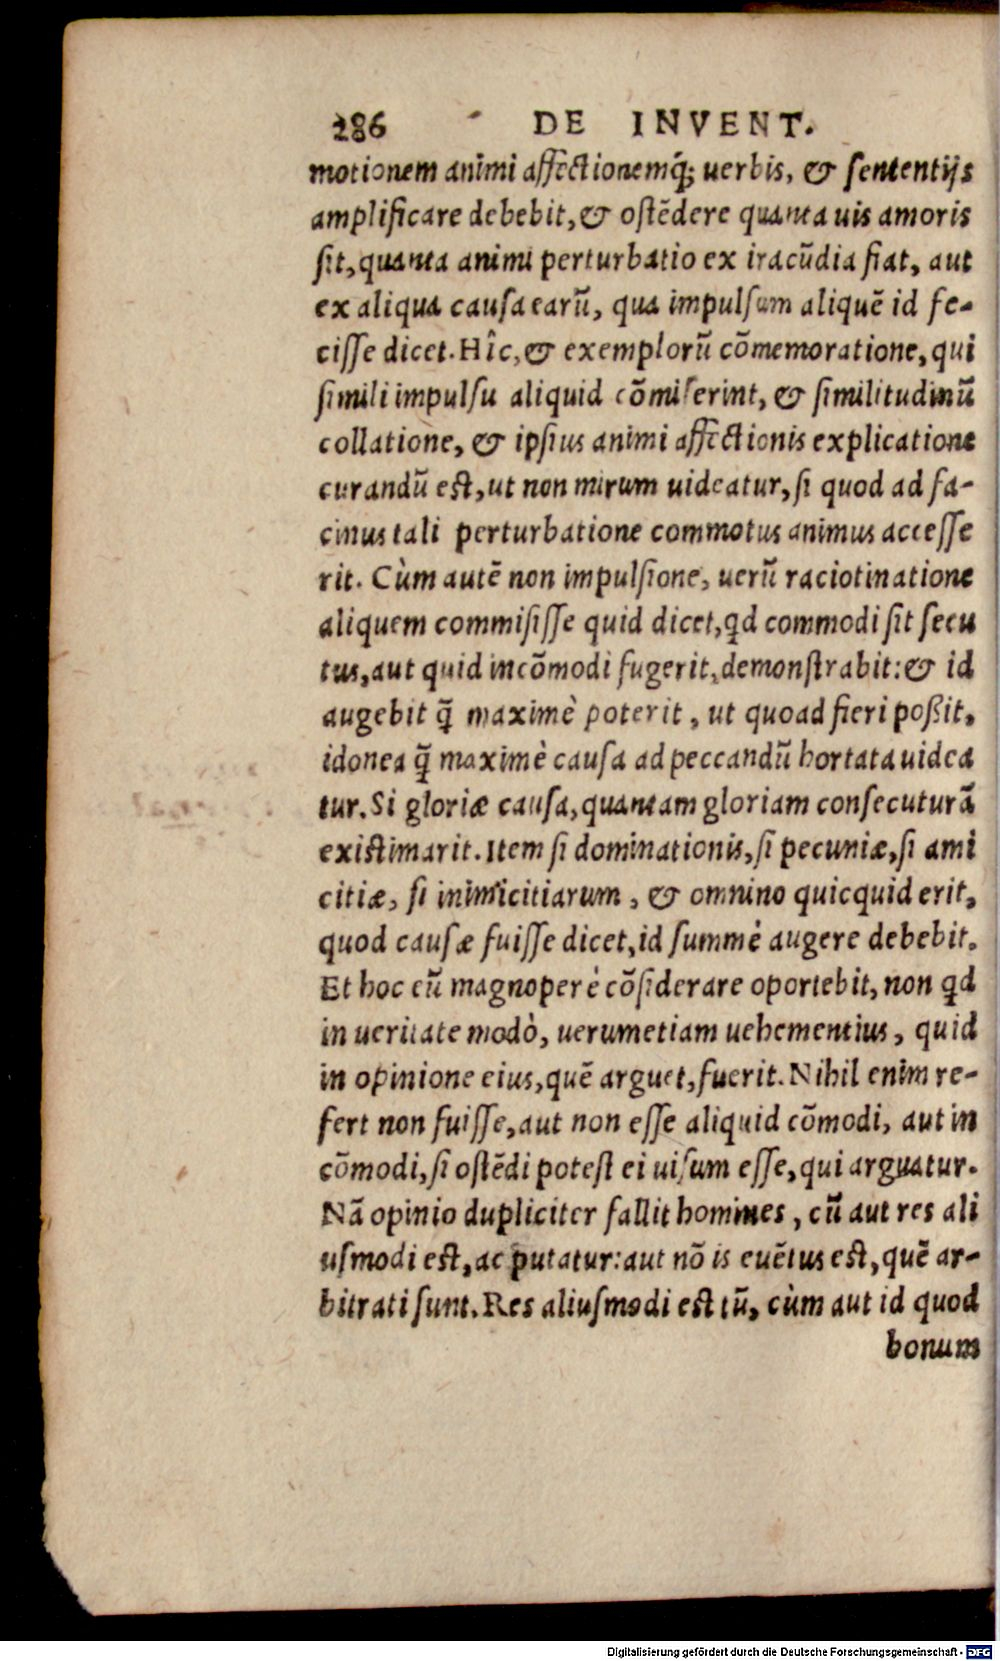 286 DE INVENT.
motionem animi affectionemq́; uerbis, & sententijs
amplificare debebit, & ostẽdere quanta uis amoris
sit, quanta animi perturbatio ex iracũdia fiat, aut
ex aliqua causa earũ, qua impulsum aliquẽ id fe-
cisse dicet. Hîc, & exemplorũ cõmemoratione, qui
simili impulsu aliquid cõmiserint, & similitudinũ
collatione, & ipsius animi affectionis explicatione
curandũ est, ut non mirum uideatur, si quod ad fa-
cinus tali perturbatione commotus animus accesse
rit. Cùm autẽ non impulsione, uerũ raciotinatione
aliquem commisisse quid dicet, qd commodi sit secu
tus, aut quid incõmodi fugerit, demonstrabit: & id
augebit q̃ maximè poterit, ut quoad fieri poßit,
idonea q̃ maximè causa ad peccandũ hortata uidea
tur. Si gloriæ causa, quantam gloriam consecuturã
existimarit. Item si dominationis, si pecuniæ, si ami
citiæ, si inimicitiarum, & omnino quicquid erit,
quod causæ fuisse dicet, id summè augere debebit.
Et hoc eũ magnoperè cõsiderare oportebit, non qd
in ueritate modò, uerumetiam uehementius, quid
in opinione eius, quẽ arguet, fuerit. Nihil enim re-
fert non fuisse, aut non esse aliquid cõmodi, aut in
cõmodi, si ostẽdi potest ei uisum esse, qui arguatur.
Nã opinio dupliciter fallit homines, cũ aut res ali
usmodi est, ac putatur: aut nõ is euẽtus est, quẽ ar-
bitrati sunt. Res aliusmodi est tũ, cùm aut id quod
bonum
Digitalisierung gefördert durch die Deutsche Forschungsgemeinschaft - DFG